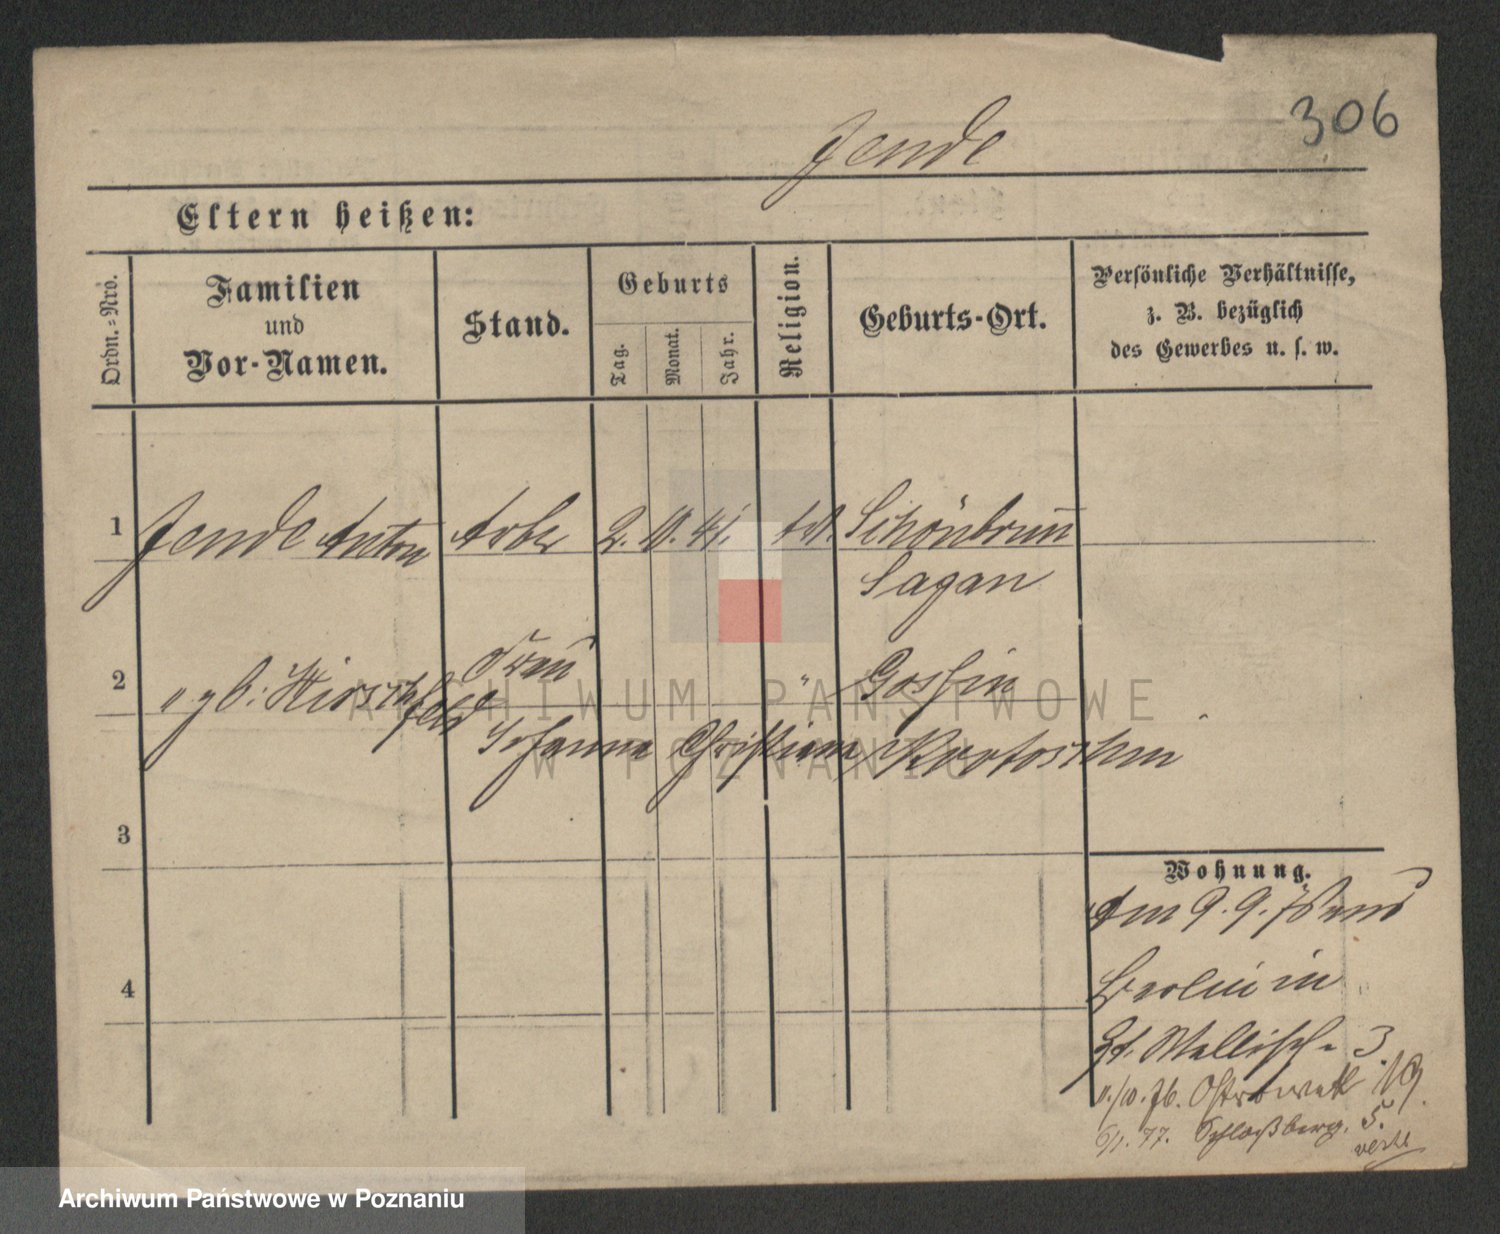 306
Jende
Eltern heißen:
Ordn.=Nro.
Familien
und
Vor-Namen.
Stand.
Geburts
Tag.
Monat.
Jahr.
Religion.
Geburts-Ort.
Persönliche Verhältnisse,
z. B. bezüglich
des Gewerbes u. s. w.
1 Jende Anton Arbtr 2. 10. 41. kth. Schönbrunn
Sagan
2 " gb: Hirschfeld Frau " Gostin
Johanna Christiana Krotoschin
3
4
Wohnung.
Am 9. 9. 76 aus
Berlin in
St. Wallisch. 3.
Ostrowek 10.
6/1. 77. Schloßberg. 5.
ARCHIWUM PAŃSTWOWE
W POZNANIU
Archiwum Państwowe w Poznaniu